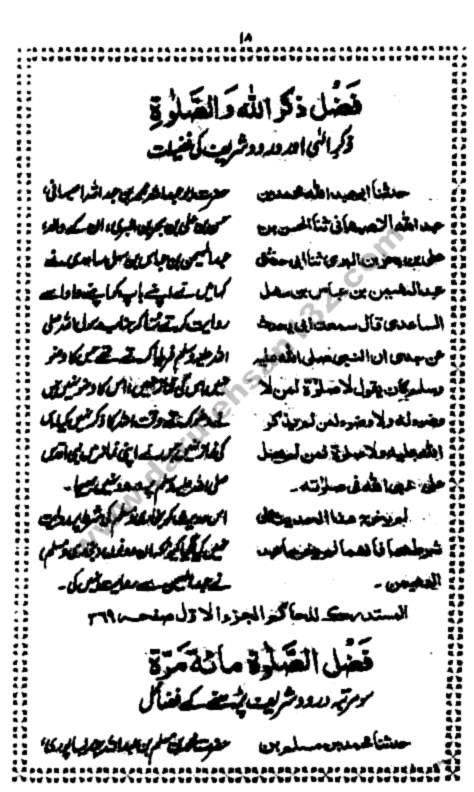 ١٨
فَضْل ذِكْرِ اللّٰهِ وَالصَّلٰوةِ
ذکرِ الٰہی اور درود شریف کی فضیلت
حدثنا ابی عبد الله محمد بن
عبد الله الاصبهانی ثنا الحسن بن
علی بن بحر بن البری ثنا ابی حدثنی
عبد المهیمن بن عباس بن سهل
الساعدی قال سمعت ابی یحدث
عن جدی ان النبی صلی الله علیه
وسلم کان یقول لا صلوة لمن لا
وضوء له ولا وضوء لمن لم یذکر
الله علیه ولا صلوة لمن لم یصل
علی نبی الله فی صلوته۔
لم یخرج هذا الحدیث علی
شرطهما فانهما لم یخرجا عبد
المهیمن۔
حضرت ابو عبد اللہ محمد بن عبد اللہ اصبہانی،
حسن بن علی بن بحر بن البری، ان کے والد،
عبد المہیمن بن عباس بن سہل ساعدی نے
کہا میں نے اپنے باپ کو اپنے دادا سے
روایت کرتے سنا کہ جناب رسول اللہ صلی
اللہ علیہ وسلم فرمایا کرتے تھے جس کا وضو
نہیں اس کی نماز نہیں، اس کا وضو نہیں جس
نے وضو کرتے وقت اللہ کا ذکر نہیں کیا، اس
کی نماز نہیں جس نے اپنی نماز میں نبی اقدس
صلی اللہ علیہ وسلم پر درود نہیں بھیجا۔
اس حدیث کو بخاری و مسلم کی شرط پر روایت
نہیں کیا گیا کیونکہ ان دونوں (بخاری و مسلم)
نے عبد المہیمن سے روایت نہیں کی۔
المستدرک للحاکم الجزء الاول صفحہ ٣٦٩
فَضْل الصَّلٰوةِ مِائَة مَرَّة
سو مرتبہ درود شریف پڑھنے کے فضائل
حدثنا محمد بن مسلم بن
www.darulehsan132.com